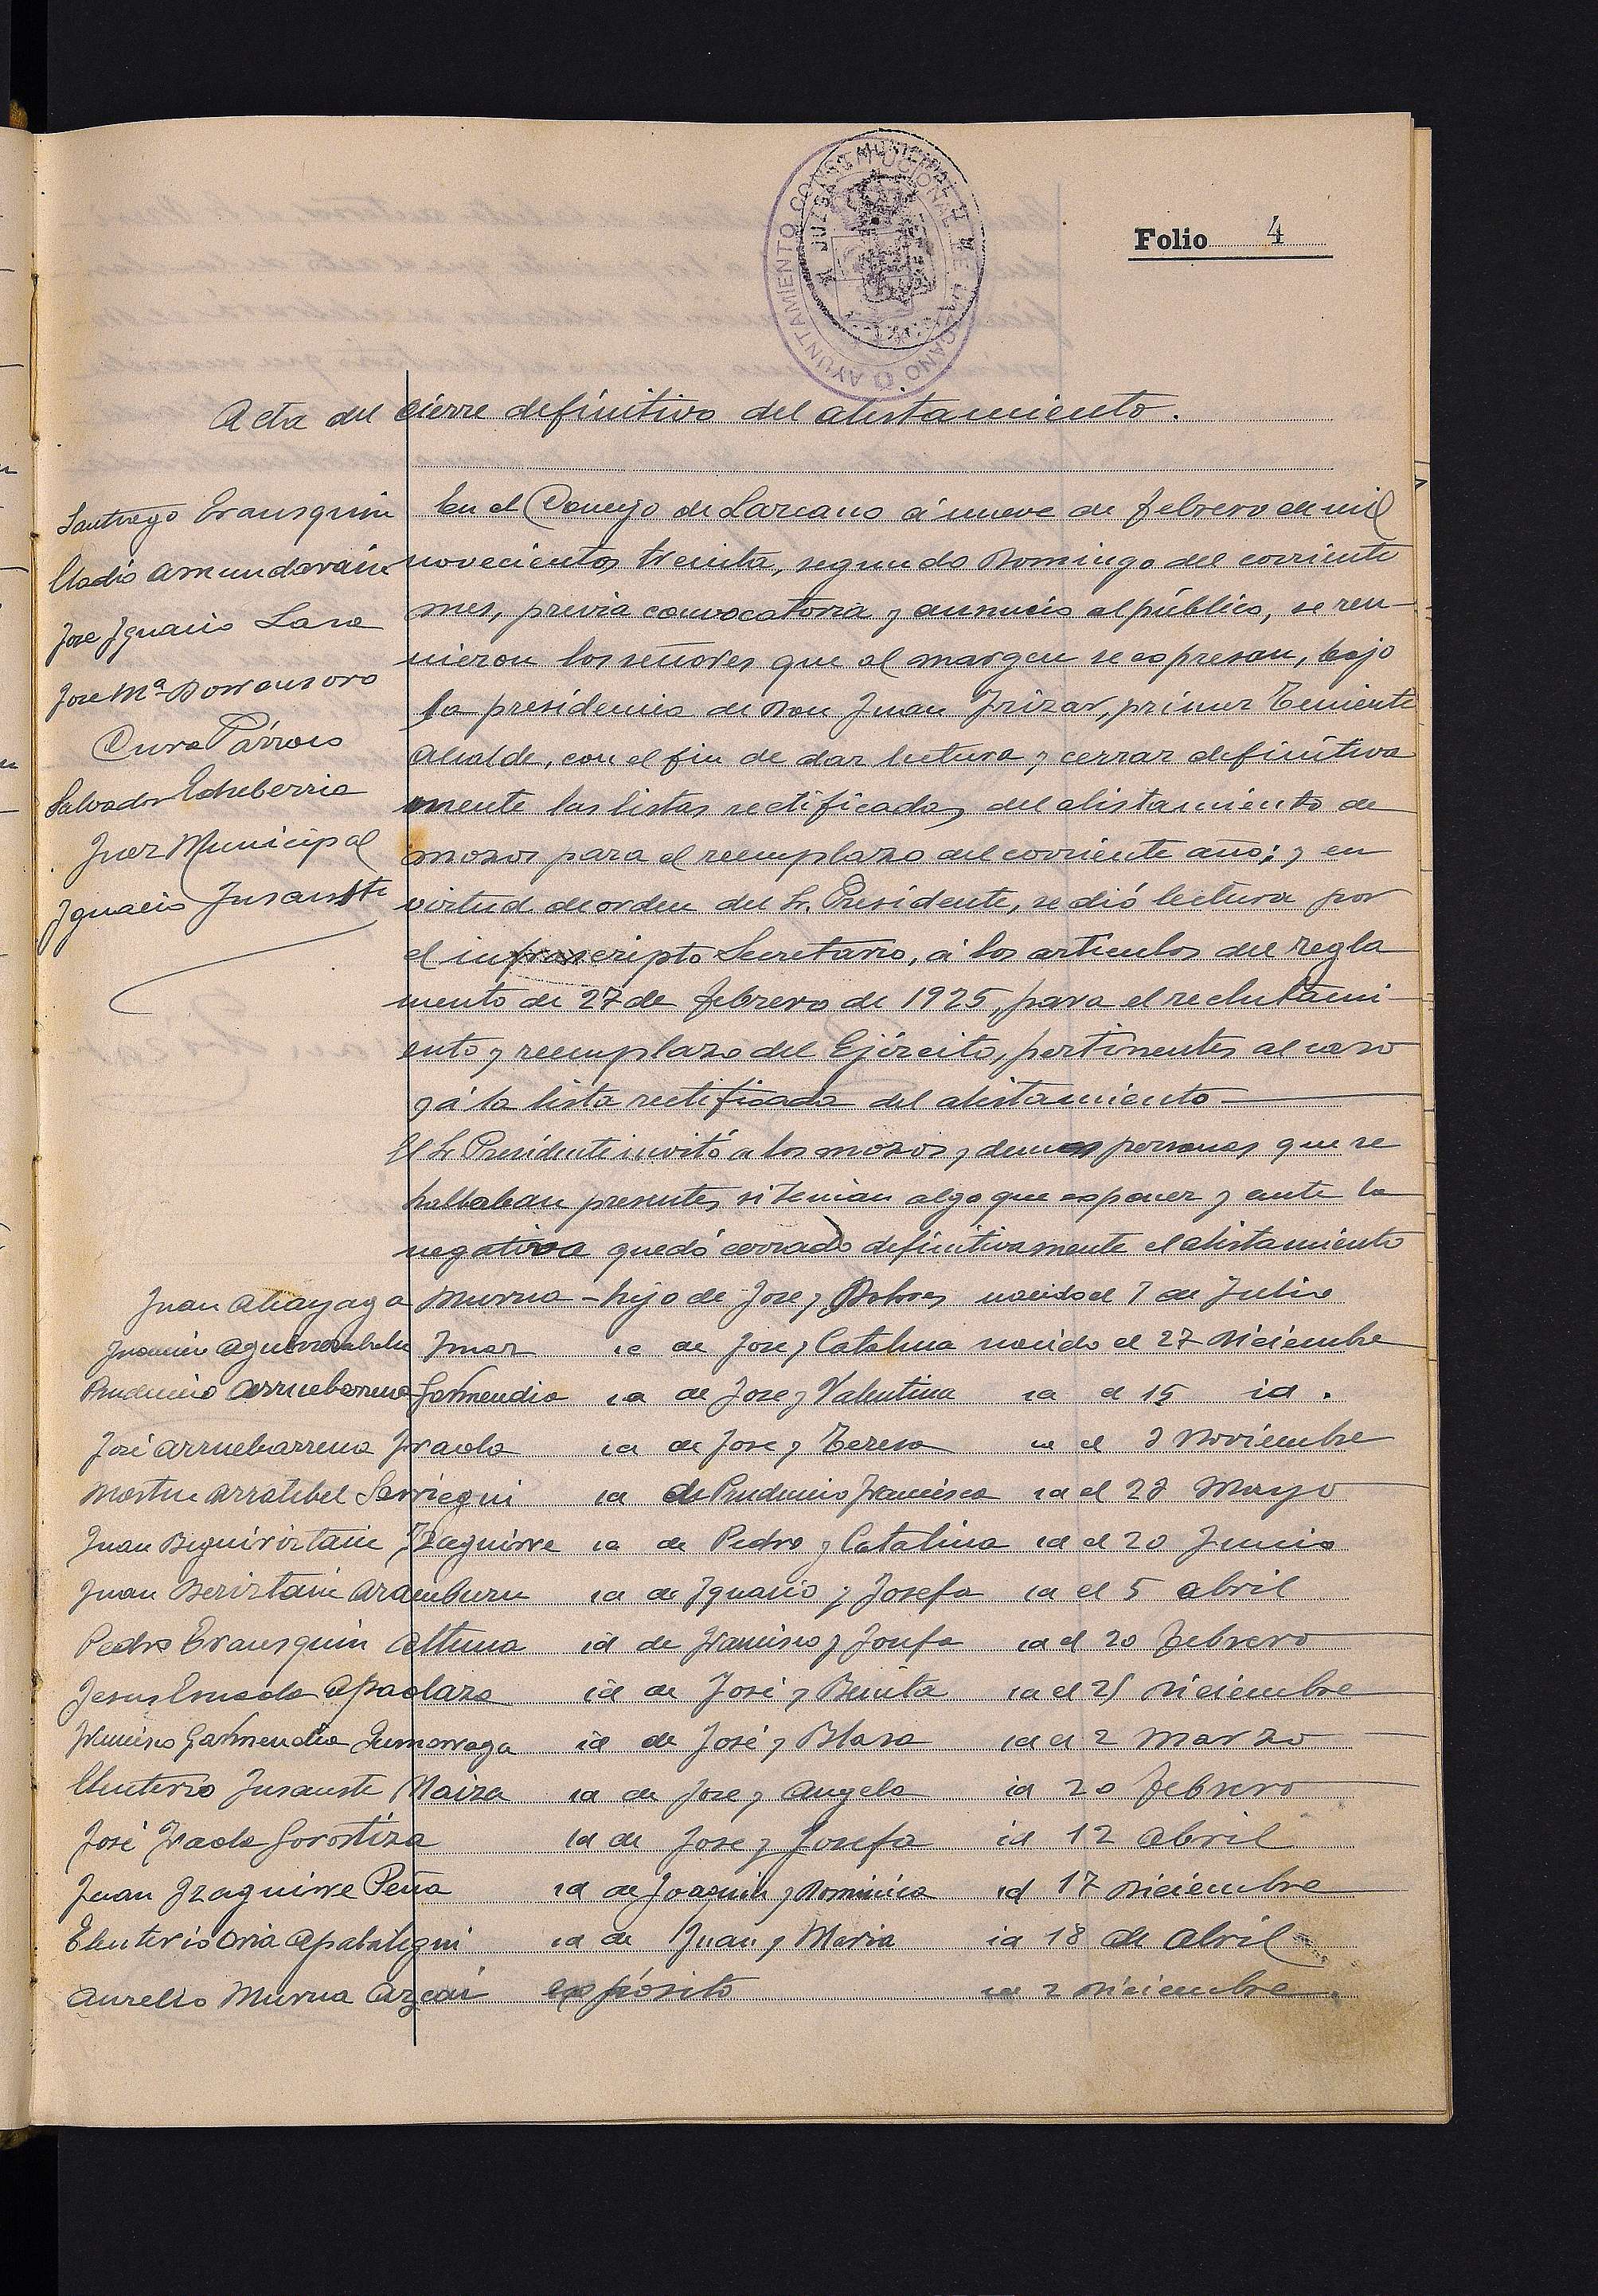 AYUNTAMIENTO CONSTITUCIONAL DE LAZCANO
JUZGADO MUNICIPAL
Folio 4
Acta del cierre definitivo del alistamiento.
Santiago Erausquin
Eladio Amundarain
Jose Ignacio Lasa
Jose Mª Dorronsoro
Cura Párroco
Salvador Echeberria
Juez Municipal
Ignacio Insausti
En el Concejo de Lazcano á nueve de febrero de mil
novecientos treinta, segundo Domingo del corriente
mes, previa convocatoria y anuncio al público, se reu-
nieron los señores que al margen se espresan, bajo
la presidencia de Don Juan Irizar, primer Teniente
Alcalde, con el fin de dar lectura y cerrar definitiva
mente las listas rectificadas del alistamiento de
mozos para el reemplazo del corriente año; y en
virtud de orden del Sr. Presidente, se dió lectura por
el infrascripto Secretario, á los artículos del regla
mento de 27 de febrero de 1925, para el reclutami-
ento y reemplazo del Ejército, pertinentes al caso
y á la lista rectificada del alistamiento
El Sr Presidente invitó a los mozos y demas personas que se
hallaban presentes si tenian algo que esponer y ante la
negativa quedó cerrado definitivamente el alistamiento
Juan Murua - hijo de Jose y Dolores nacido el 7 de Julio
de Jose y Catalina nacido el 27 Diciembre
Prudencio Arruebarrena Garmendia id de Jose y Valentina id el 15 id.
José Arruebarrena Iraola id de Jose y Teresa id el Noviembre
Martin Arratibel Sarriegui id de Prudencio Francisca id el Mayo
Juan Beguiristain Izaguirre id de Pedro y Catalina id el 20 Junio
Juan Aramburu id de Ignacio y Josefa id el 5 abril
Pedro Erausquin Altuna id de Francisco y Josefa id el 20 Febrero
Jesus Apaolaza id de José y Benita id el Diciembre
Francisco Garmendia Zumarraga id de José y Blasa id el 2 Marzo
Eleuterio Insausti Maiza id de Jose y Angela id 20 Febrero
José Iraola Gorostiza id de Jose y Josefa id 12 Abril
Juan Izaguirre Peña id de Joaquin y Dominica id 17 Diciembre
Eleuterio Oria Apalategui id de Juan y Maria id 18 de Abril
Aurelio Murua expósito id 2 Diciembre.